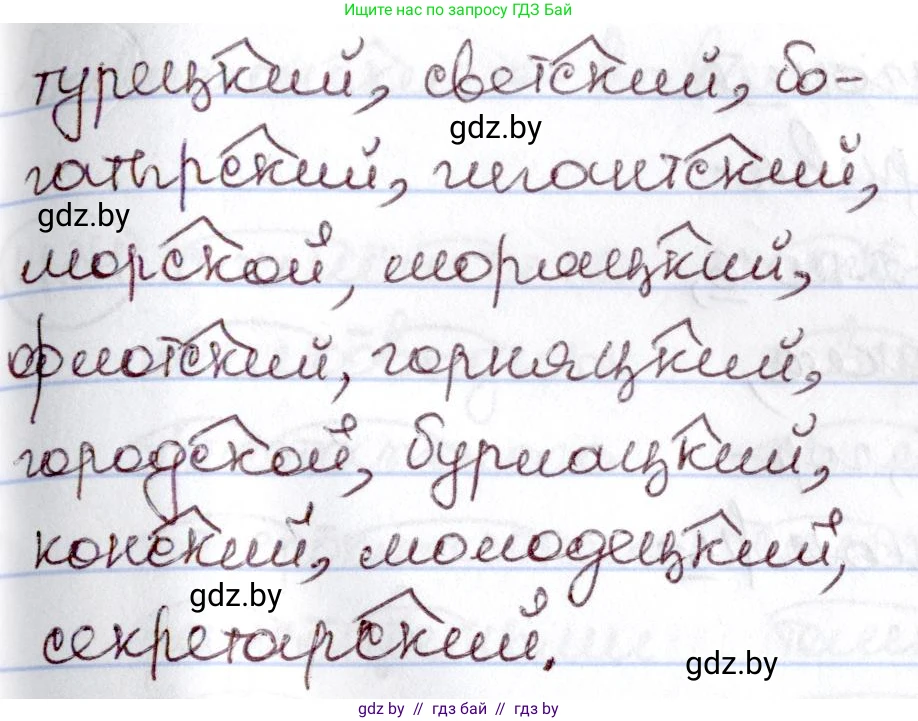 Ищите нас по запросу ГДЗ Бай
турецкий, светский, бо-
gdz.by
гатырский, гигантский,
gdz.by
морской, моряцкий,
флотский, горняцкий,
городской, бурлацкий,
конский, молодецкий,
gdz.by
секретарский.
gdz.by
gdz.by // гдз бай // гдз by